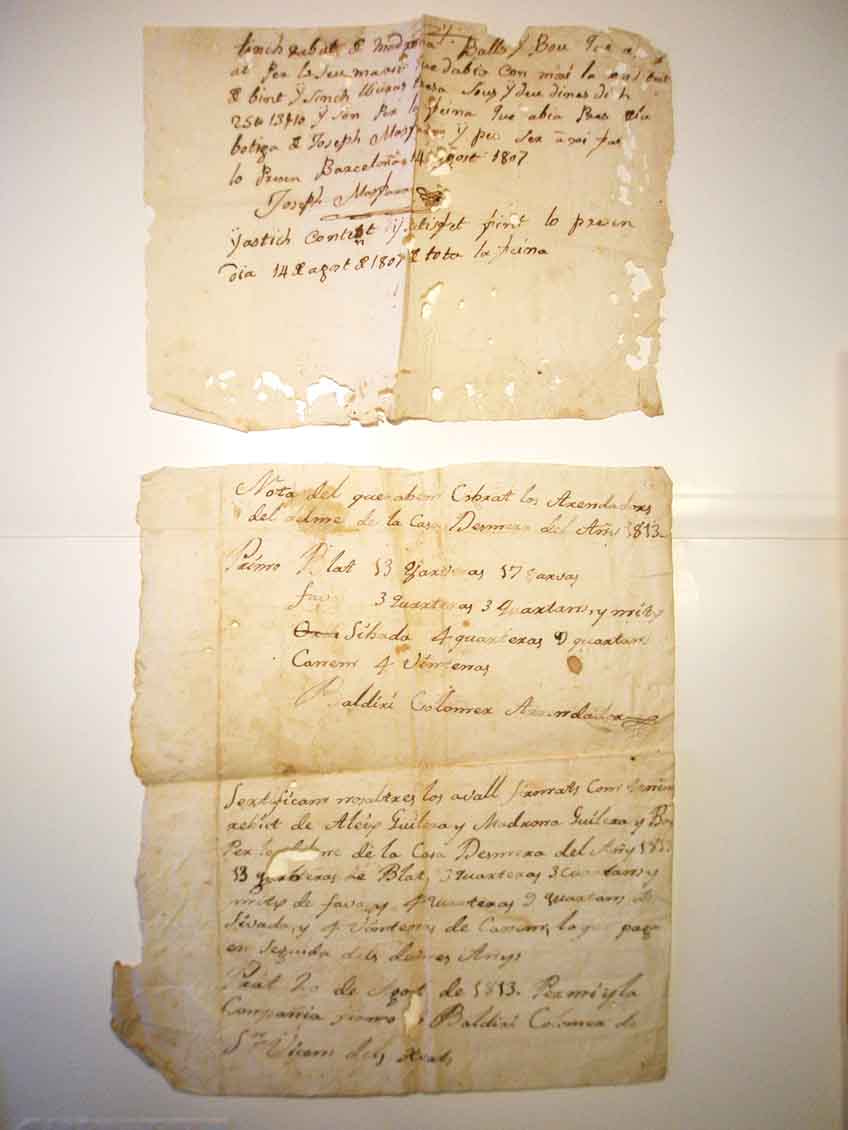 tinch rebut de Madrona Balls y Bou
at per lo seu marit que dabia con mai la
de bint y sinch lliuras tresa sous y deu dines dich
25 ll 13 s 10 y son per la feina que abia pres de la
botiga de Joseph Masfarra y per ser axi fas
lo presen Barcelona 14 agost 1807
Joseph Masfarra
y astich content y satisfet fins lo presen
dia 14 de agost de 1807 de tota la feina
Nota del que abem Cobrat los Arendadors
del delme de la Casa Desmera del Añy 1813.
Primo Blat 13 Quarteras 17 Garvas
fava 3 quarteras 3 Quartans, y mitx
Sibada 4 quarteras 9 quartans
Canem 4 Vintenas
Baldiri Colomer Arrendador
Sertificam nosaltres los avall firmats Com
rebut de Aleix Guilera y Madrona Guilera y Bou
Per lo delme de la Casa Desmera del Añy 1813
13 quarteras de Blat, 3 quarteras 3 Cuartans y
mitx de fava, y 4 Quarteras 9 quartans de
Sivada, y 4 Vintenas de Canem, lo que paga
en seguida dels demes Anys
Prat 20 de Agost de 1813. Per mi y la
Compañia firmo Baldiri Colomer de
Sn Vicens dels Horts